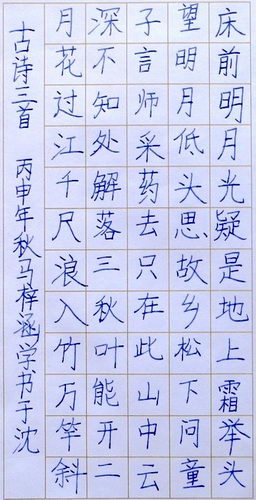 床前明月光疑是地上霜举头
望明月低头思故乡松下问童
子言师采药去只在此山中云
深不知处解落三秋叶能开二
月花过江千尺浪入竹万竿斜
古诗三首 丙申年秋马梓涵学书于沈